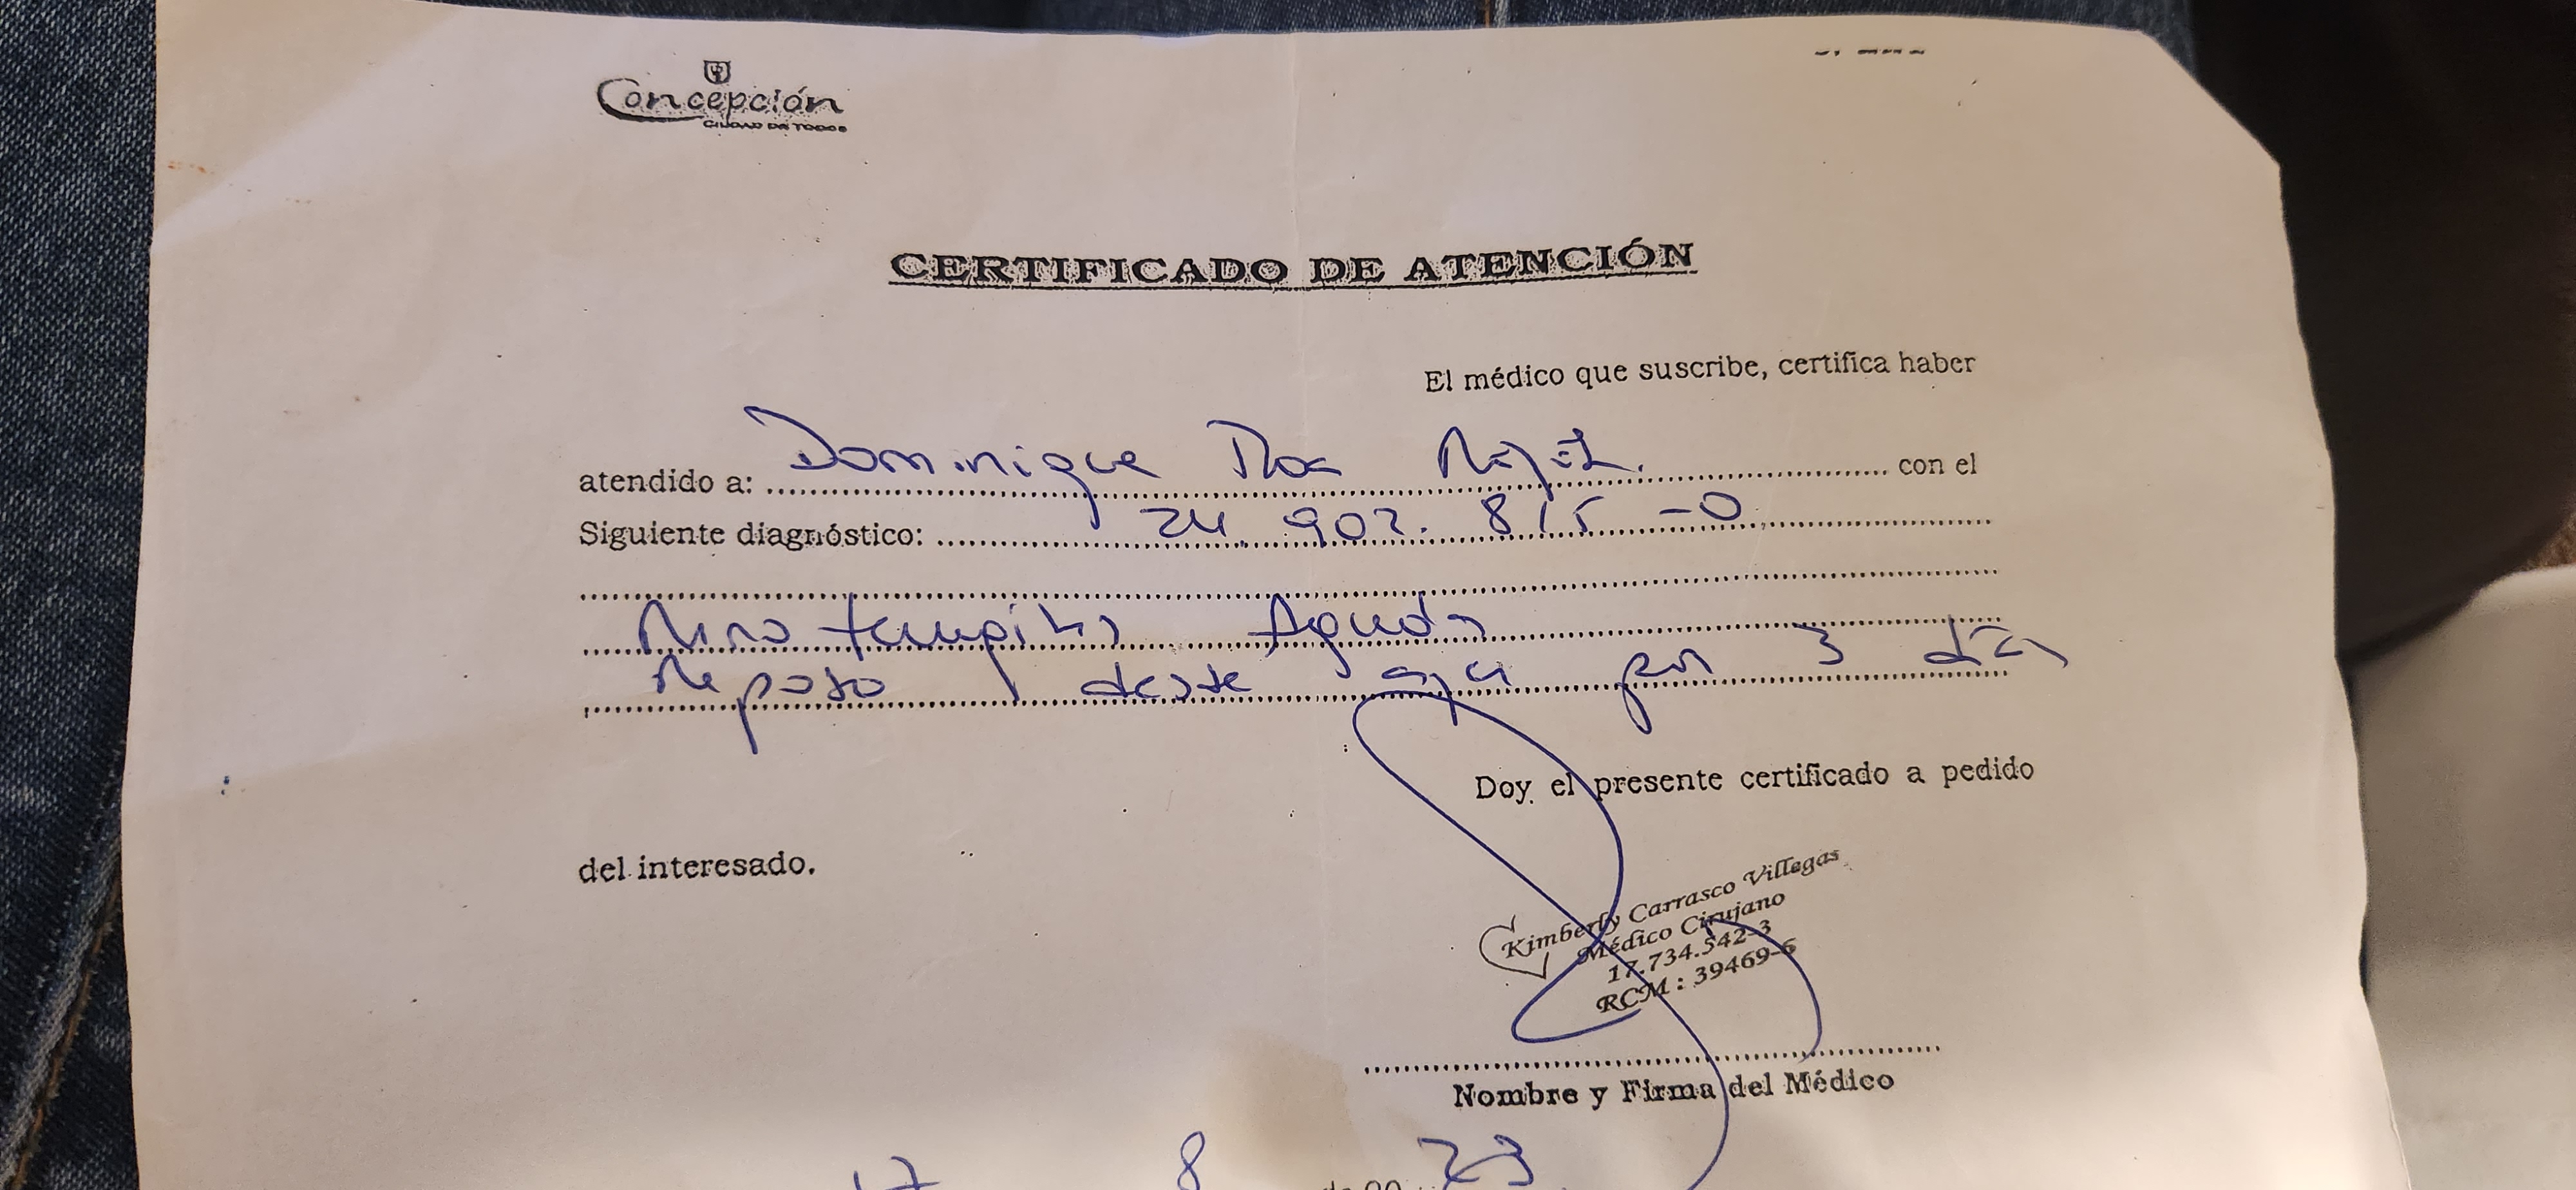 Concepción
CIUDAD DE TODOS
CERTIFICADO DE ATENCIÓN
El médico que suscribe, certifica haber
atendido a: Dominique Roa con el
Siguiente diagnóstico: 24.902.815-0
Rinofaringitis Aguda
Reposo desde hoy por 3 días
Doy el presente certificado a pedido
del interesado.
Kimberly Carrasco Villegas
Médico Cirujano
17.734.542-3
RCM : 39469-6
Nombre y Firma del Médico
17 8 23